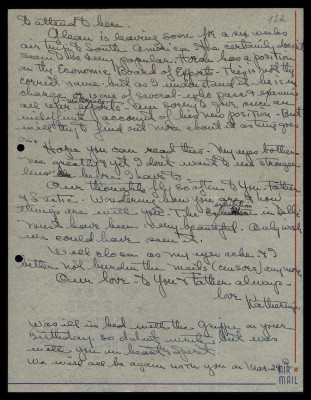 132
to attend to here.
is leaving soon for a six weeks
air trip to South America. He certainly doesn't
seem to be very popular. has a position
on the Economic Board of Exports - They is not the
correct name - but as I understand it he is in
charge - or is one of several - who pass & examine
all exports - Am sorry to give such an
indefinite account of his new position - But
will try to find out more about it as time goes
on.
Hope you can read this - My eyes bother
me greatly & yet I don't want to use stronger
lens before I have to
Our thoughts fly so often to you - Father
& - Wondering how you are & how
things are with you. The in Delhi
must have been very beautiful. Only wish
we could have seen it.
Will close as my eyes ache & I
better not burden the mails (censors) anymore
Our love - to you & Father always -
love
Katherine
Was ill in bed with the Grippe on your
Birthday so did not write but was
with you in heart & spirit.
We will all be again with you on Mar. 24th
AIR MAIL